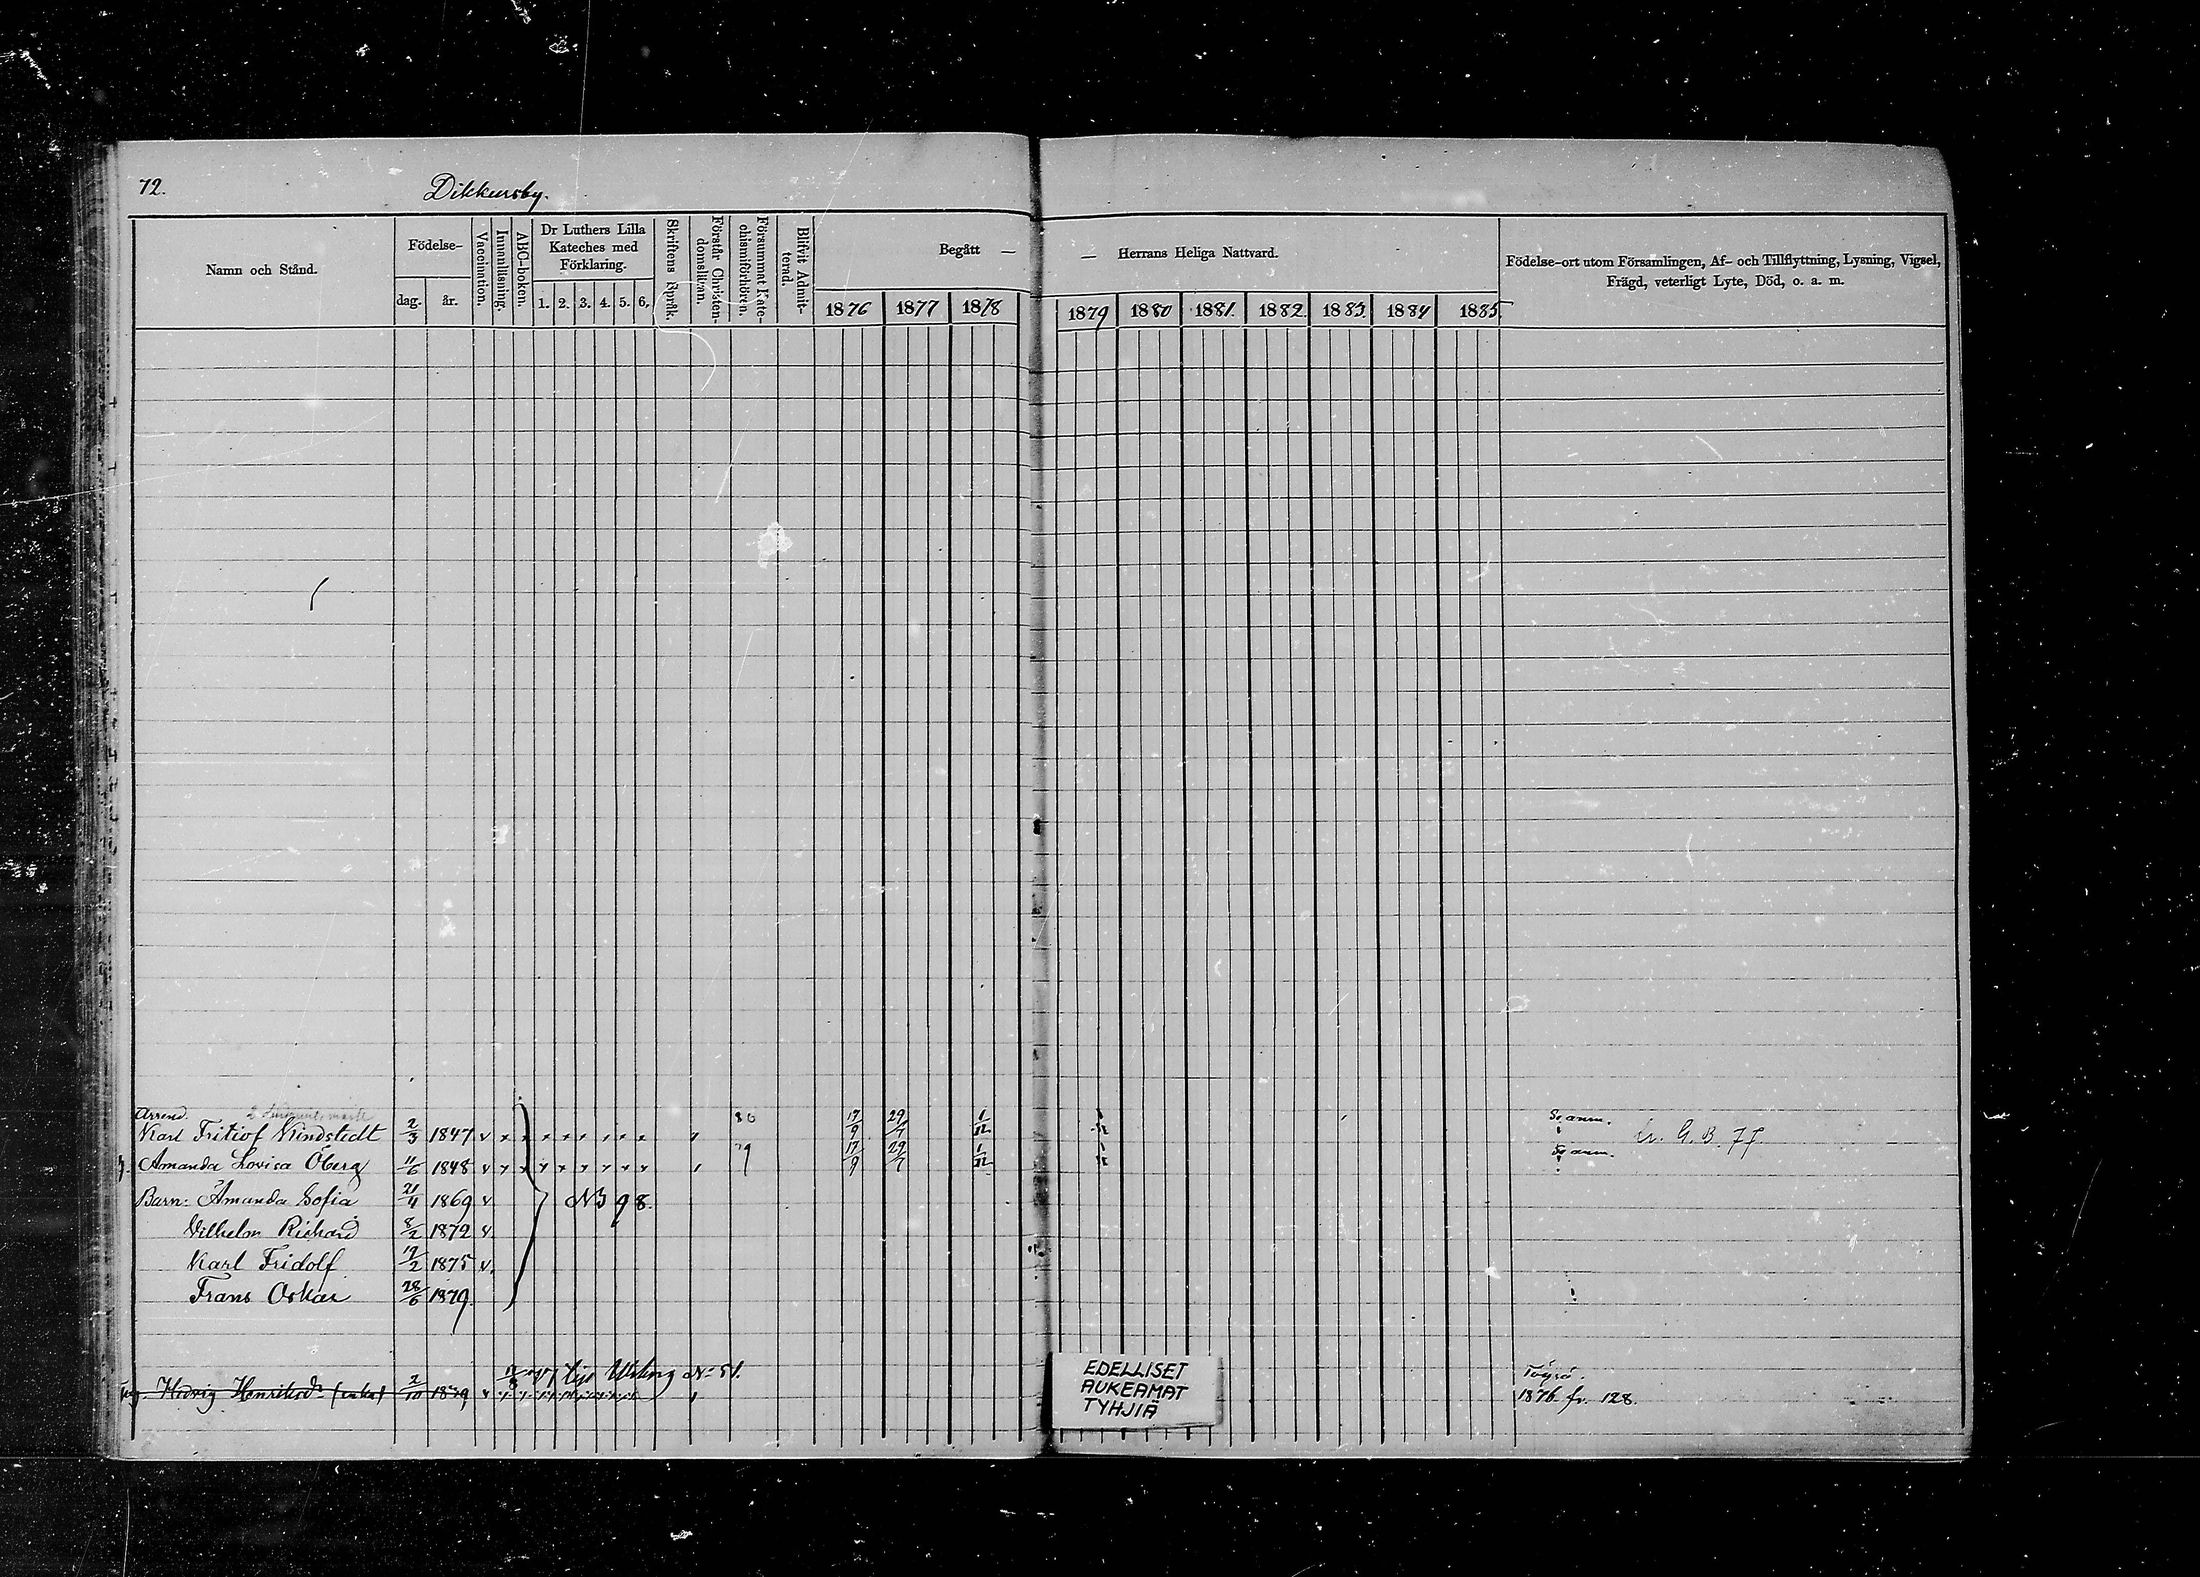 72.
Dikkursby.
Namn och Stånd.
Födelse-
dag.
år.
Vaccination.
Innanlläsning.
ABC-boken.
Dr Luthers Lilla
Kateches med
Förklaring.
1. 2. 3. 4. 5. 6.
Skriftens Språk.
Förstår Christen-
domsläran.
Försummat Kate-
chismiförhören.
Blifvit Admit-
terad.
Begått —
1876 1877 1878
— Herrans Heliga Nattvard.
1879 1880 1881. 1882. 1883. 1884 1885.
Födelse-ort utom Församlingen, Af- och Tillflyttning, Lysning, Vigsel,
Frägd, veterligt Lyte, Död, o. a. m.
Arrend. 80
Karl Fritiof Kindstedt 2/3 1847 v 17/9 29/7 1/12 anm. G. B. 77
Amanda Lovisa Öberg 11/6 1848 v 79 17/9 29/7 1/12 anm.
Barn: Amanda Sofia 21/4 1869 v. 98.
Vilhelm Richard 8/2 1872 v.
Karl Fridolf 19/2 1875 v.
Frans Oskar 28/6 1879.
Hedvig Henriksd:r (enka) 2/10 v
EDELLISET
AUKEAMAT
TYHJIÄ
1876 fr. 128.